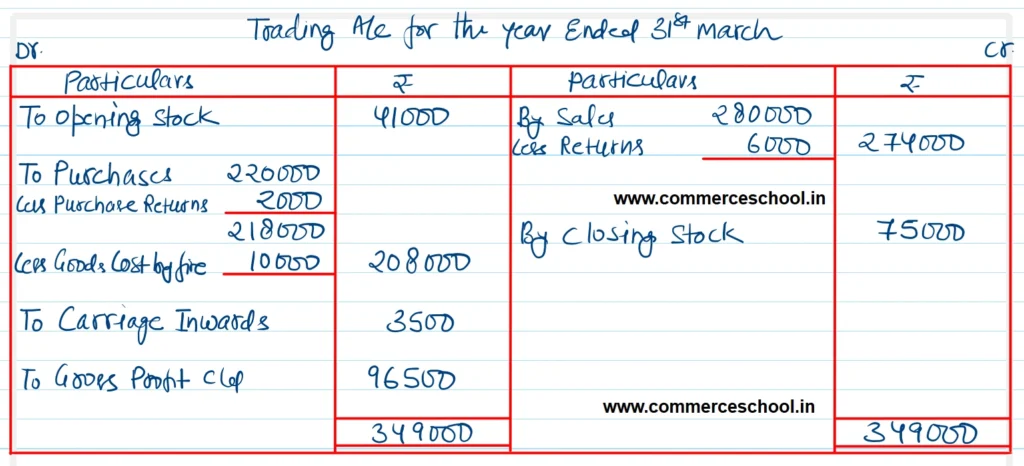 Trading A/c for the year Ended 31st march
Dr. Cr.
Particulars ₹ Particulars ₹
To opening stock 41000 By Sales 280000
Less Returns 6000 274000
To Purchases 220000
Less Purchase Returns 2000 www.commerceschool.in
218000 By Closing Stock 75000
Less Goods Lost by fire 10000 208000
To Carriage Inwards 3500
To Gross Profit c/d 96500
www.commerceschool.in
349000 349000